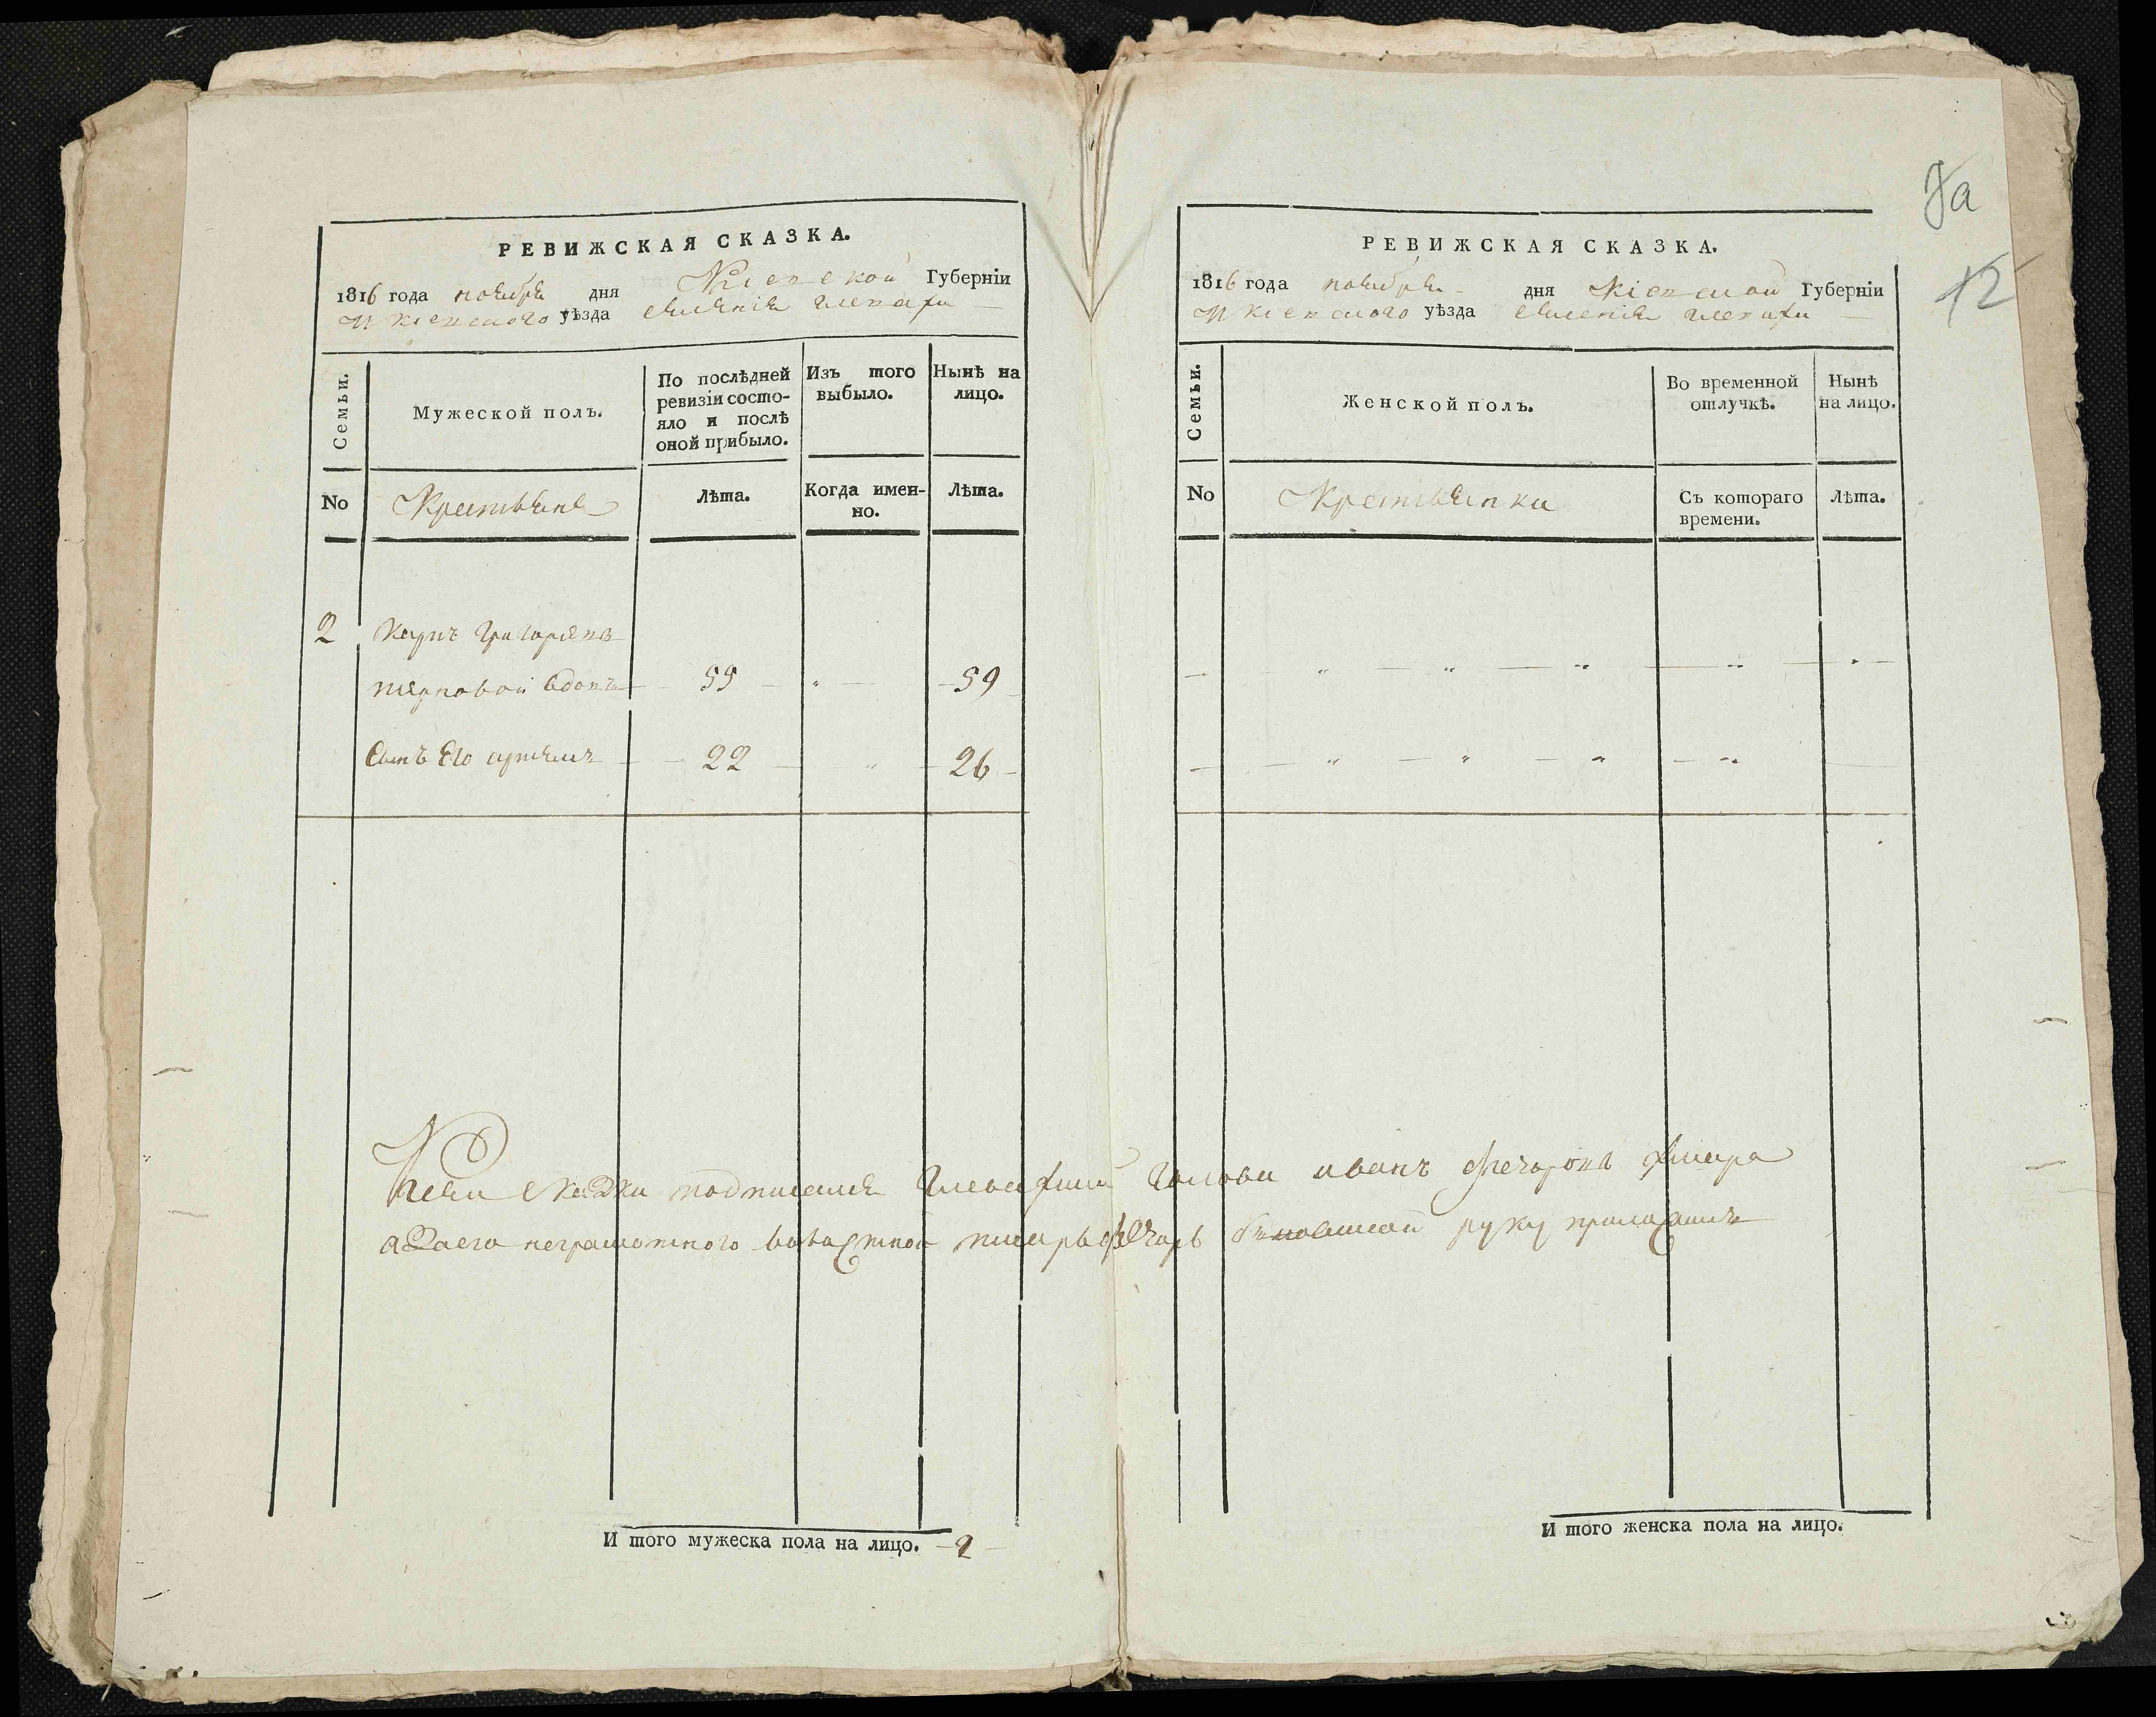 РЕВИЖСКАЯ СКАЗКА.
1816 года ноября дня Кіевской Губерніи
И Кіевского уѣзда селенія
Семьи.
Мужеской полъ.
По послѣдней ревизіи состо-
яло и послѣ оной прибыло.
Изъ того выбыло.
Нынѣ на лицо.
No
Крестьяне
Лѣта.
Когда имен-
но.
Лѣта.
2 Карпъ Григорьевъ
вдовъ 55 59
Сынъ Его артемъ 22 26
И того мужеска пола на лицо. 2
РЕВИЖСКАЯ СКАЗКА.
1816 года ноября дня Кіевской Губерніи
И Кіевского уѣзда селенія
Семьи.
Женской полъ.
Во временной отлучкѣ.
Нынѣ на лицо.
No
Крестьянки
Съ котораго времени.
Лѣта.
К сей сказки подписался Голова иванъ
а За его неграмотного писарь руку приложилъ
И того женска пола на лицо.
12